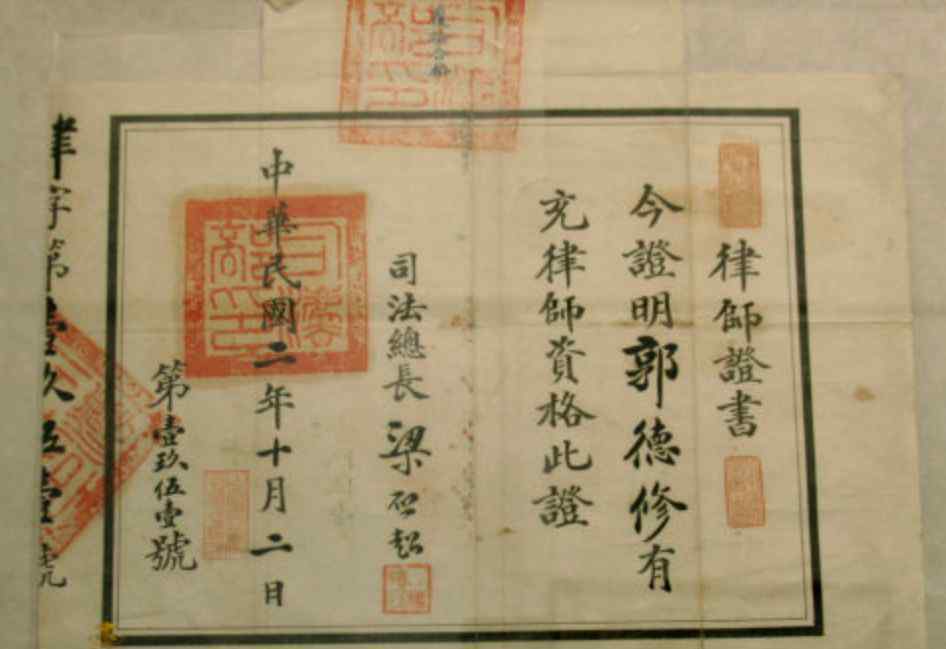 律師證書
今證明郭德修有
充律師資格此證
司法總長梁啓超
中華民國二年十月二日
第壹玖伍壹號
律字第壹玖伍壹號
司法部印